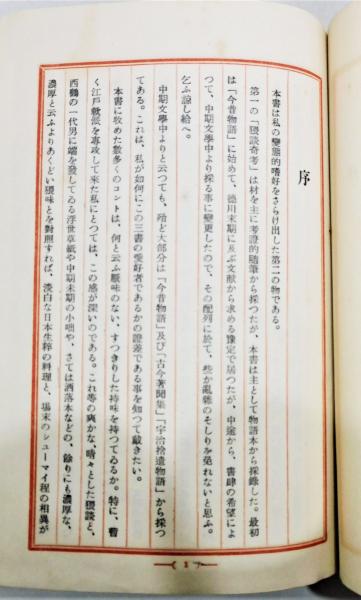 序
本書は私の變態的嗜好をさらけ出した第二の物である。
第一の「猥談奇考」は材を主に考證的隨筆から採つたが、本書は主として物語本から採錄した。最初
は「今昔物語」に始めて、德川末期に及ぶ文献から求める豫定で居つたが、中途から、書肆の希望によ
つて、中期文學中より採る事に變更したので、その配列に於て、些か亂雜のそしりを免れないと思ふ。
乞ふ諒し給へ。
中期文學中よりと云つても、殆ど大部分は「今昔物語」及び「古今著聞集」「宇治拾遺物語」から採つ
てある。これは、私が如何にこの三書の愛好者であるかの證差である事を知つて戴きたい。
本書に收めた數多くのコントは、何と云ふ厭味のない、すつきりした持味を持つてゐるか。特に、曹
く江戸軟派を專攻して來た私にとつては、この感が深いのである。これ等の爽かな、晴々とした猥談と、
西鶴の一代男に端を發してゐる浮世草紙や中期末期の小咄や、さては洒落本などの、餘りにも濃厚な、
濃厚と云ふよりあくどい猥味とを對照すれば、淡白な日本生粹の料理と、場末のシューマイ程の相異が
1